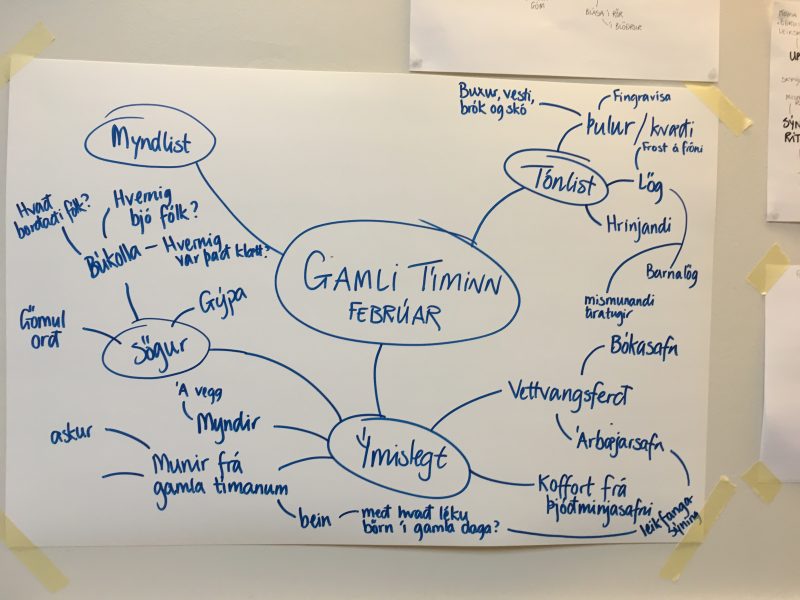 GÓM
BLÁSA Í RÖR
Í BLÖÐRUR
Myndlist
Buxur, vesti,
brók og skó
Fingravísa
Þulur / kvæði
Frost á fróni
Tónlist
Lög
Hrinjandi
Barnalög
mismunandi
áratugir
Hvað
borðaði fólk?
Hvernig
bjó fólk?
Búkolla – Hvernig
var það klætt?
GAMLI TÍMINN
FEBRÚAR
Gömul
orð
Gýpa
Sögur
Bókasafn
Vettvangsferð
Árbæjarsafn
Á vegg
Myndir
Ýmislegt
askur
Munir frá
gamla tímanum
Koffort frá
Þjóðminjasafni
bein
með hvað léku
börn í gamla daga?
leikfanga-
sýning